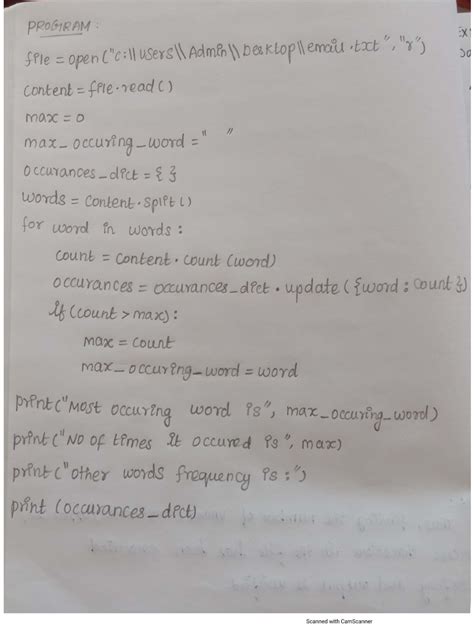 PROGRAM:
file = open("c:\\users\\Admin\\Desktop\\email.txt","r")
content = file.read()
max = 0
max_occuring_word = " "
occurances_dict = { }
words = content.split()
for word in words :
count = content.count(word)
occurances = occurances_dict.update({word : count})
if (count > max) :
max = count
max_occuring_word = word
print("Most occuring word is", max_occuring_word)
print("No of times it occured is", max)
print("other words frequency is :")
print (occurances_dict)
Scanned with CamScanner